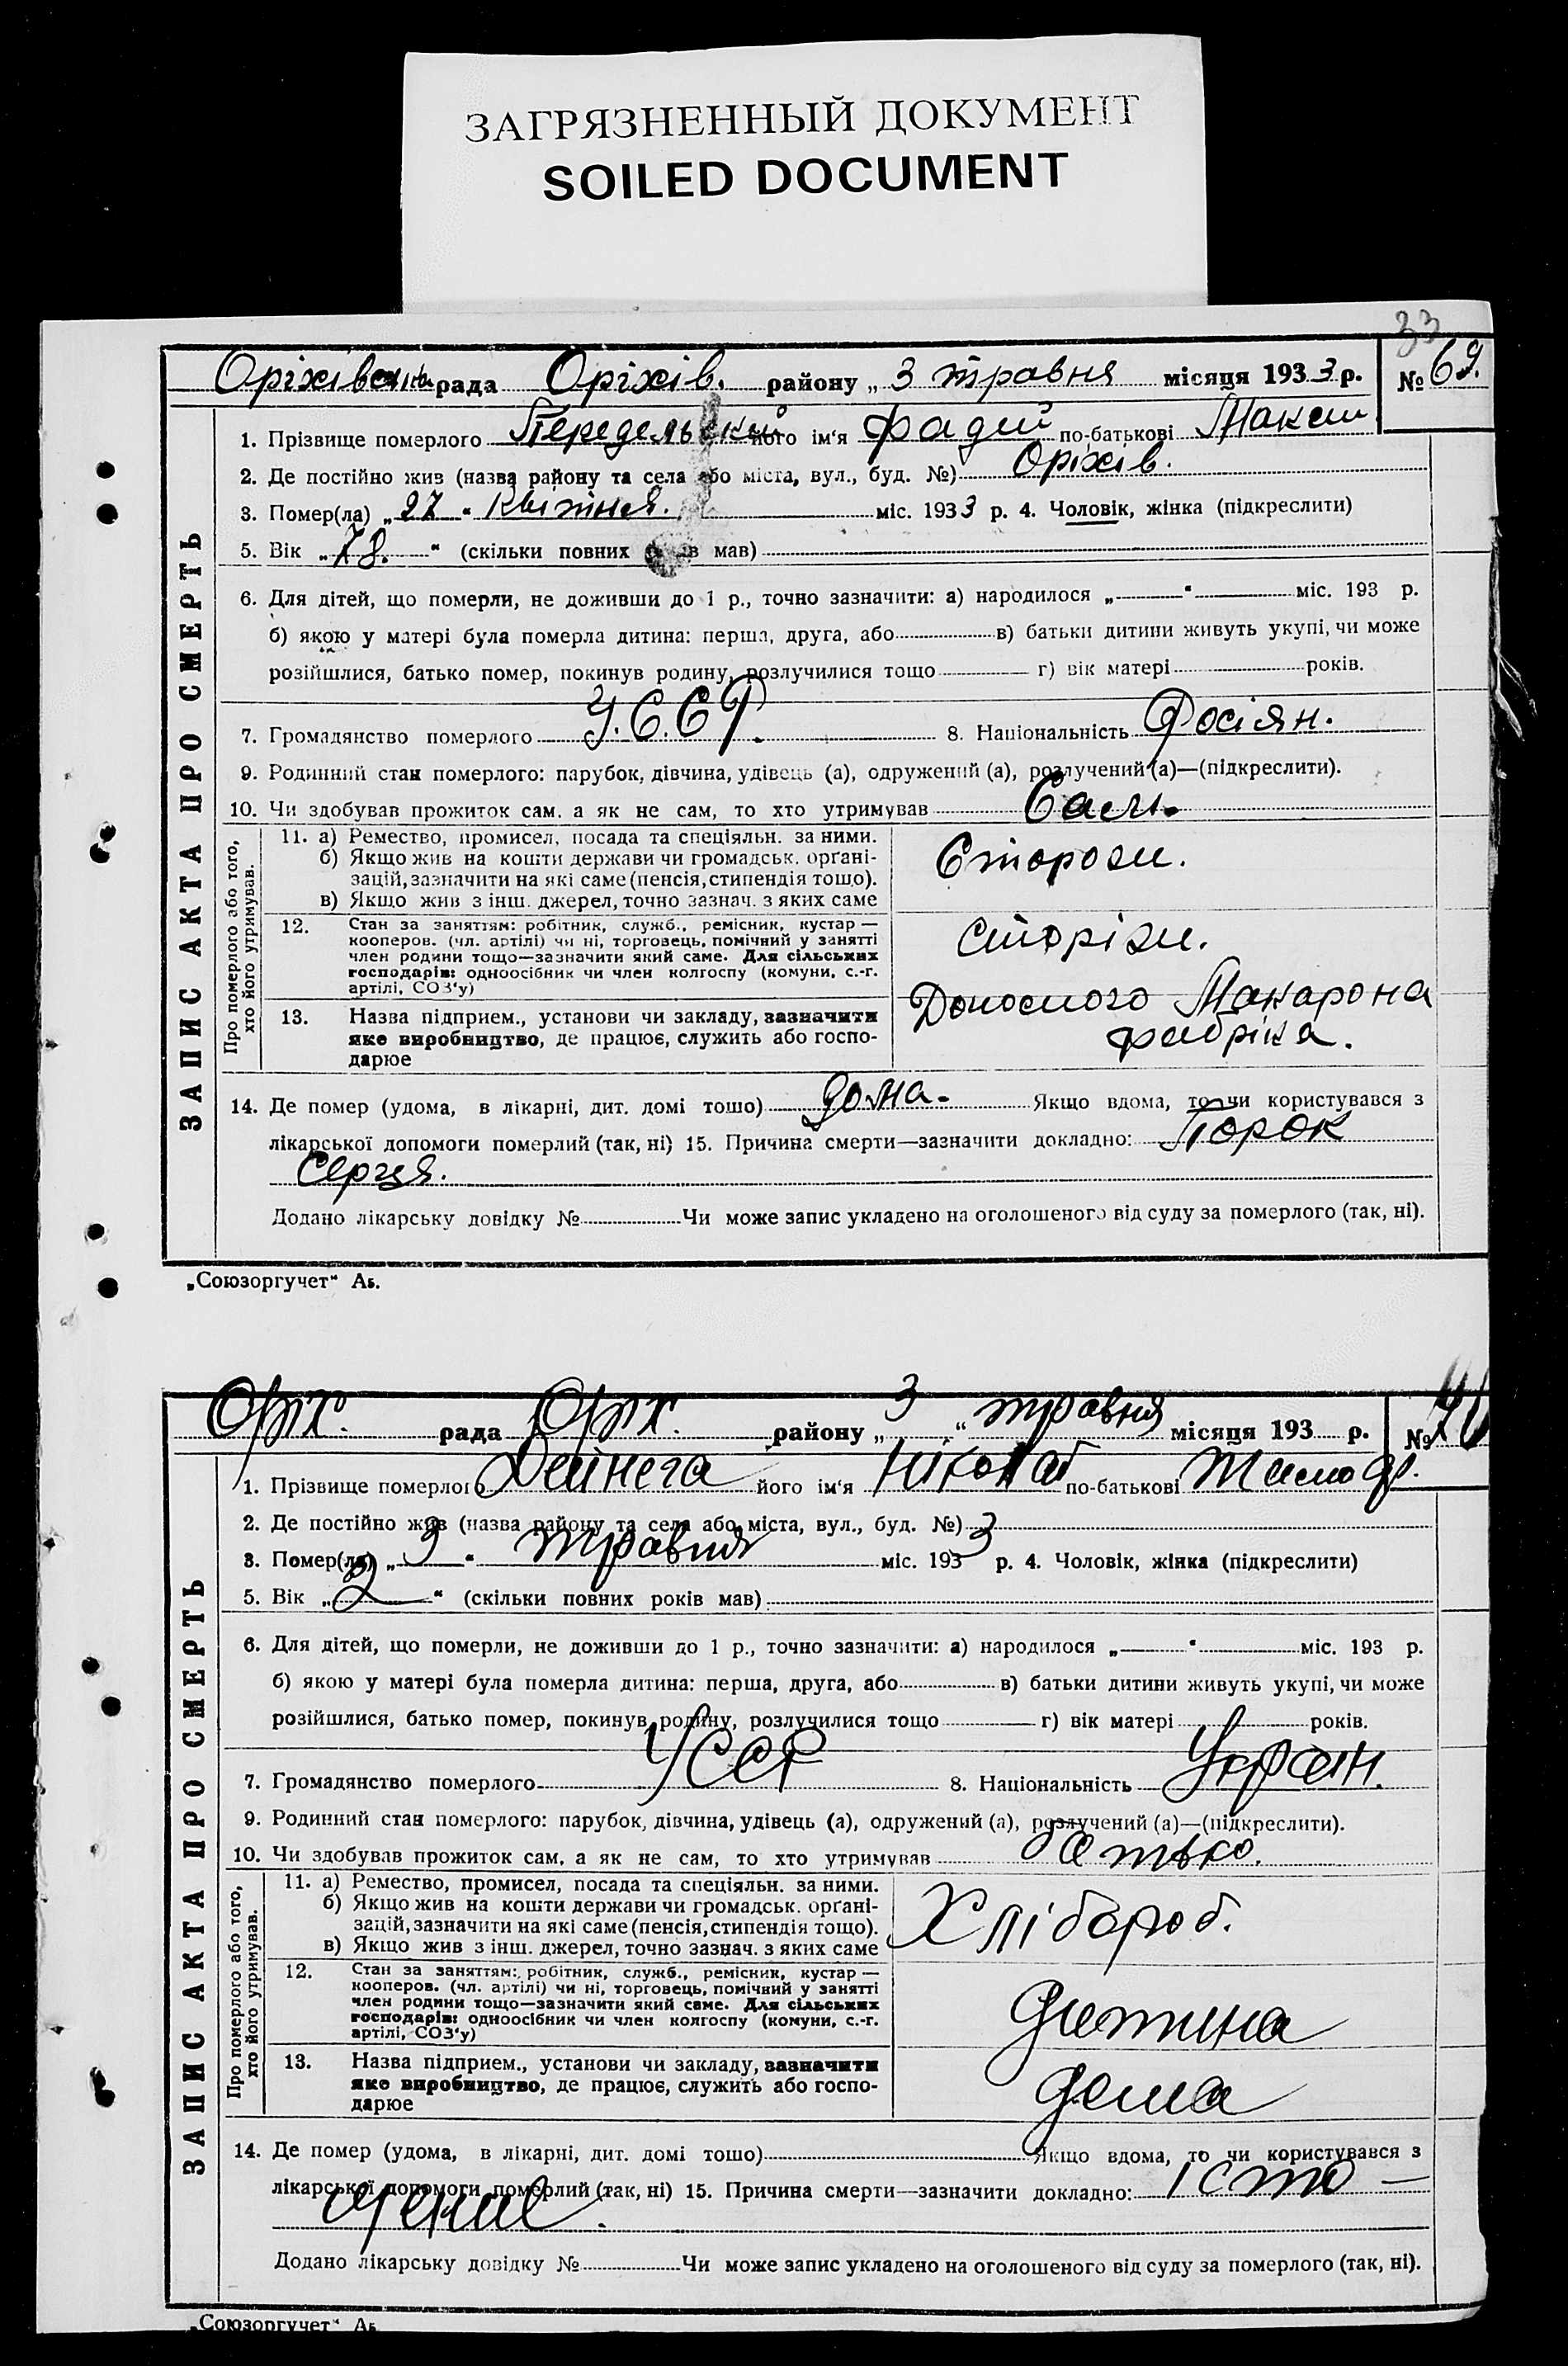 ЗАГРЯЗНЕННЫЙ ДОКУМЕНТ
SOILED DOCUMENT
33
Оріхівська рада Оріхів. району „ 3 травня місяця 1933 р. № 69.
ЗАПИС АКТА ПРО СМЕРТЬ
1. Прізвище померлого Передельский його ім'я Фадей по-батькові Максим
2. Де постійно жив (назва району та села або міста, вул., буд. №) Оріхів.
3. Помер(ла) „27“ квітня. міс. 1933 р. 4. Чоловік, жінка (підкреслити)
5. Вік „78.“ (скільки повних років мав)
6. Для дітей, що померли, не доживши до 1 р., точно зазначити: а) народилося „ “ міс. 193 р.
б) якою у матері була померла дитина: перша, друга, або в) батьки дитини живуть укупі, чи може
розійшлися, батько помер, покинув родину, розлучилися тощо г) вік матері років.
7. Громадянство померлого У.С.СР. 8. Національність Росіян.
9. Родинний стан померлого: парубок, дівчина, удівець (а), одружений (а), розлучений (а)—(підкреслити).
10. Чи здобував прожиток сам, а як не сам, то хто утримував Сам.
Про померлого або того, хто його утримував.
11. а) Ремество, промисел, посада та спеціяльн. за ними.
б) Якщо жив на кошти держави чи громадськ. орґані-
зацій, зазначити на які саме (пенсія, стипендія тощо).
в) Якщо жив з інш. джерел, точно зазнач. з яких саме
Сторож.
12. Стан за заняттям: робітник, служб., ремісник, кустар —
кооперов. (чл. артілі) чи ні, торговець, помічний у занятті
член родини тощо—зазначити який саме. Для сільських
господарів: одноосібник чи член колгоспу (комуни, с.-г.
артілі, СОЗ'у)
сторіж.
13. Назва підприєм., установи чи закладу, зазначити
яке виробництво, де працює, служить або госпо-
дарює
Макарона
фабріка.
14. Де помер (удома, в лікарні, дит. домі тошо) дома. Якщо вдома, то чи користувався з
лікарської допомоги померлий (так, ні) 15. Причина смерти—зазначити докладно: Порок
серця.
Додано лікарську довідку № Чи може запис укладено на оголошеного від суду за померлого (так, ні).
„Союзоргучет“ Аб.
Оріх. рада Оріх. району „ 3 “ травня місяця 193 р. № 70
ЗАПИС АКТА ПРО СМЕРТЬ
1. Прізвище померлого Дейнега його ім'я Ніколай по-батькові
2. Де постійно жив (назва району та села або міста, вул., буд. №)
3. Помер(ла) „3“ травня міс. 1933 р. 4. Чоловік, жінка (підкреслити)
5. Вік „2“ (скільки повних років мав)
6. Для дітей, що померли, не доживши до 1 р., точно зазначити: а) народилося „ “ міс. 193 р.
б) якою у матері була померла дитина: перша, друга, або в) батьки дитини живуть укупі, чи може
розійшлися, батько помер, покинув родину, розлучилися тощо г) вік матері років.
7. Громадянство померлого УССР 8. Національність Украін.
9. Родинний стан померлого: парубок, дівчина, удівець (а), одружений (а), розлучений (а)—(підкреслити).
10. Чи здобував прожиток сам, а як не сам, то хто утримував батько.
Про померлого або того, хто його утримував.
11. а) Ремество, промисел, посада та спеціяльн. за ними.
б) Якщо жив на кошти держави чи громадськ. орґані-
зацій, зазначити на які саме (пенсія, стипендія тощо).
в) Якщо жив з інш. джерел, точно зазнач. з яких саме
Хлібороб.
12. Стан за заняттям: робітник, служб., ремісник, кустар —
кооперов. (чл. артілі) чи ні, торговець, помічний у занятті
член родини тощо—зазначити який саме. Для сільських
господарів: одноосібник чи член колгоспу (комуни, с.-г.
артілі, СОЗ'у)
дитина
13. Назва підприєм., установи чи закладу, зазначити
яке виробництво, де працює, служить або госпо-
дарює
дома
14. Де помер (удома, в лікарні, дит. домі тошо) Якщо вдома, то чи користувався з
лікарської допомоги померлий (так, ні) 15. Причина смерти—зазначити докладно: істо—
щение.
Додано лікарську довідку № Чи може запис укладено на оголошеного від суду за померлого (так, ні).
„Союзоргучет“ Аб.